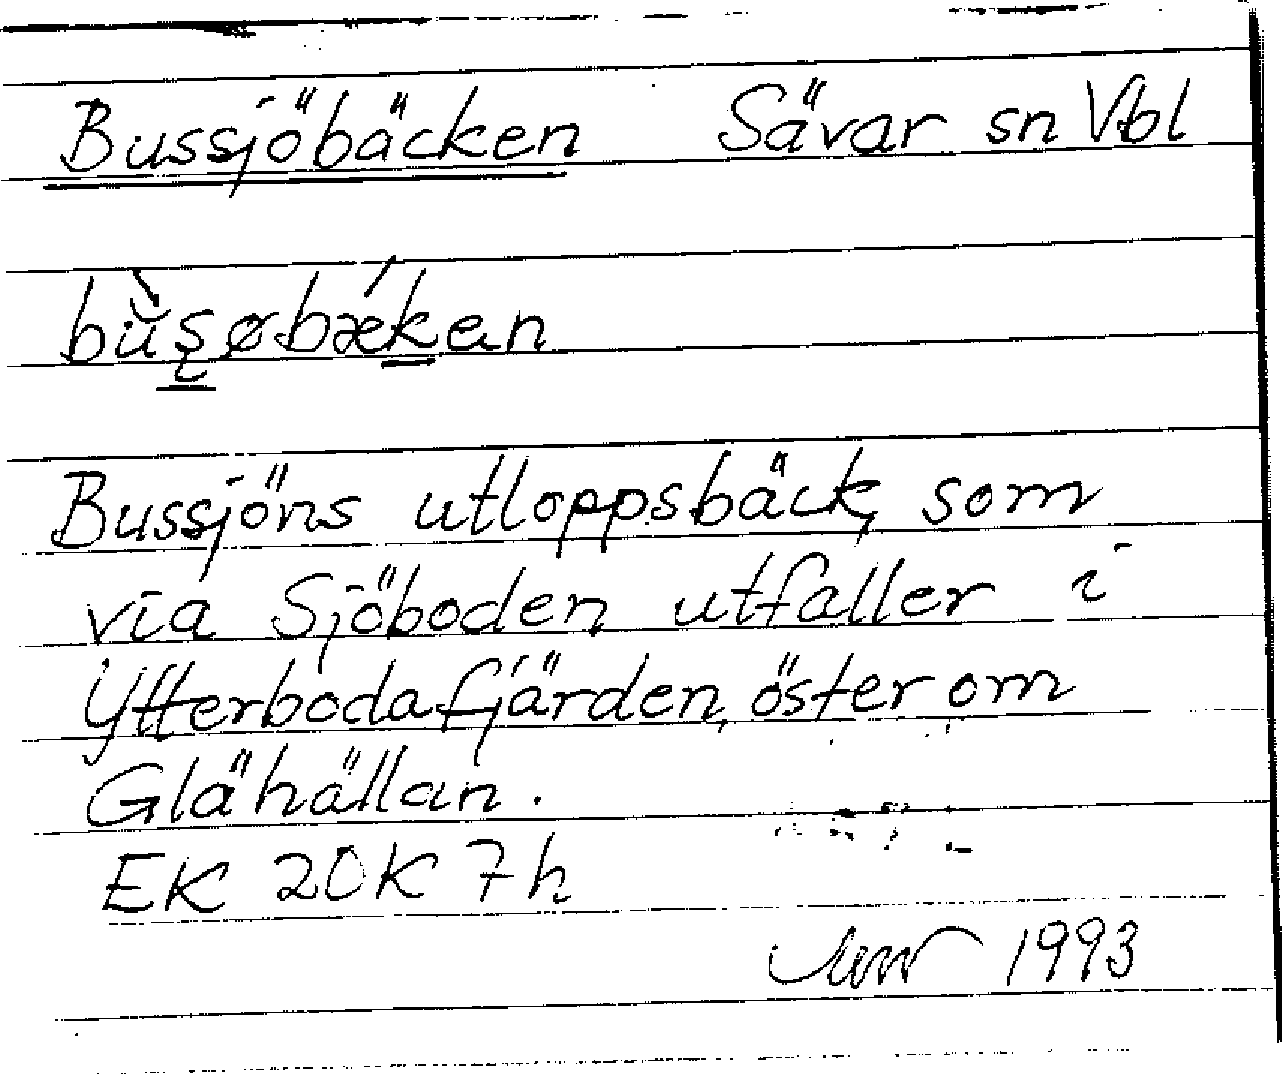 Bussjöbäcken Sävar sn Vbl
bùs̨øbǽken
Bussjöns utloppsbäck, som
via Sjöboden utfaller i
Ytterbodafjärden, öster om
Glähällan.
EK 20K 7h
1993